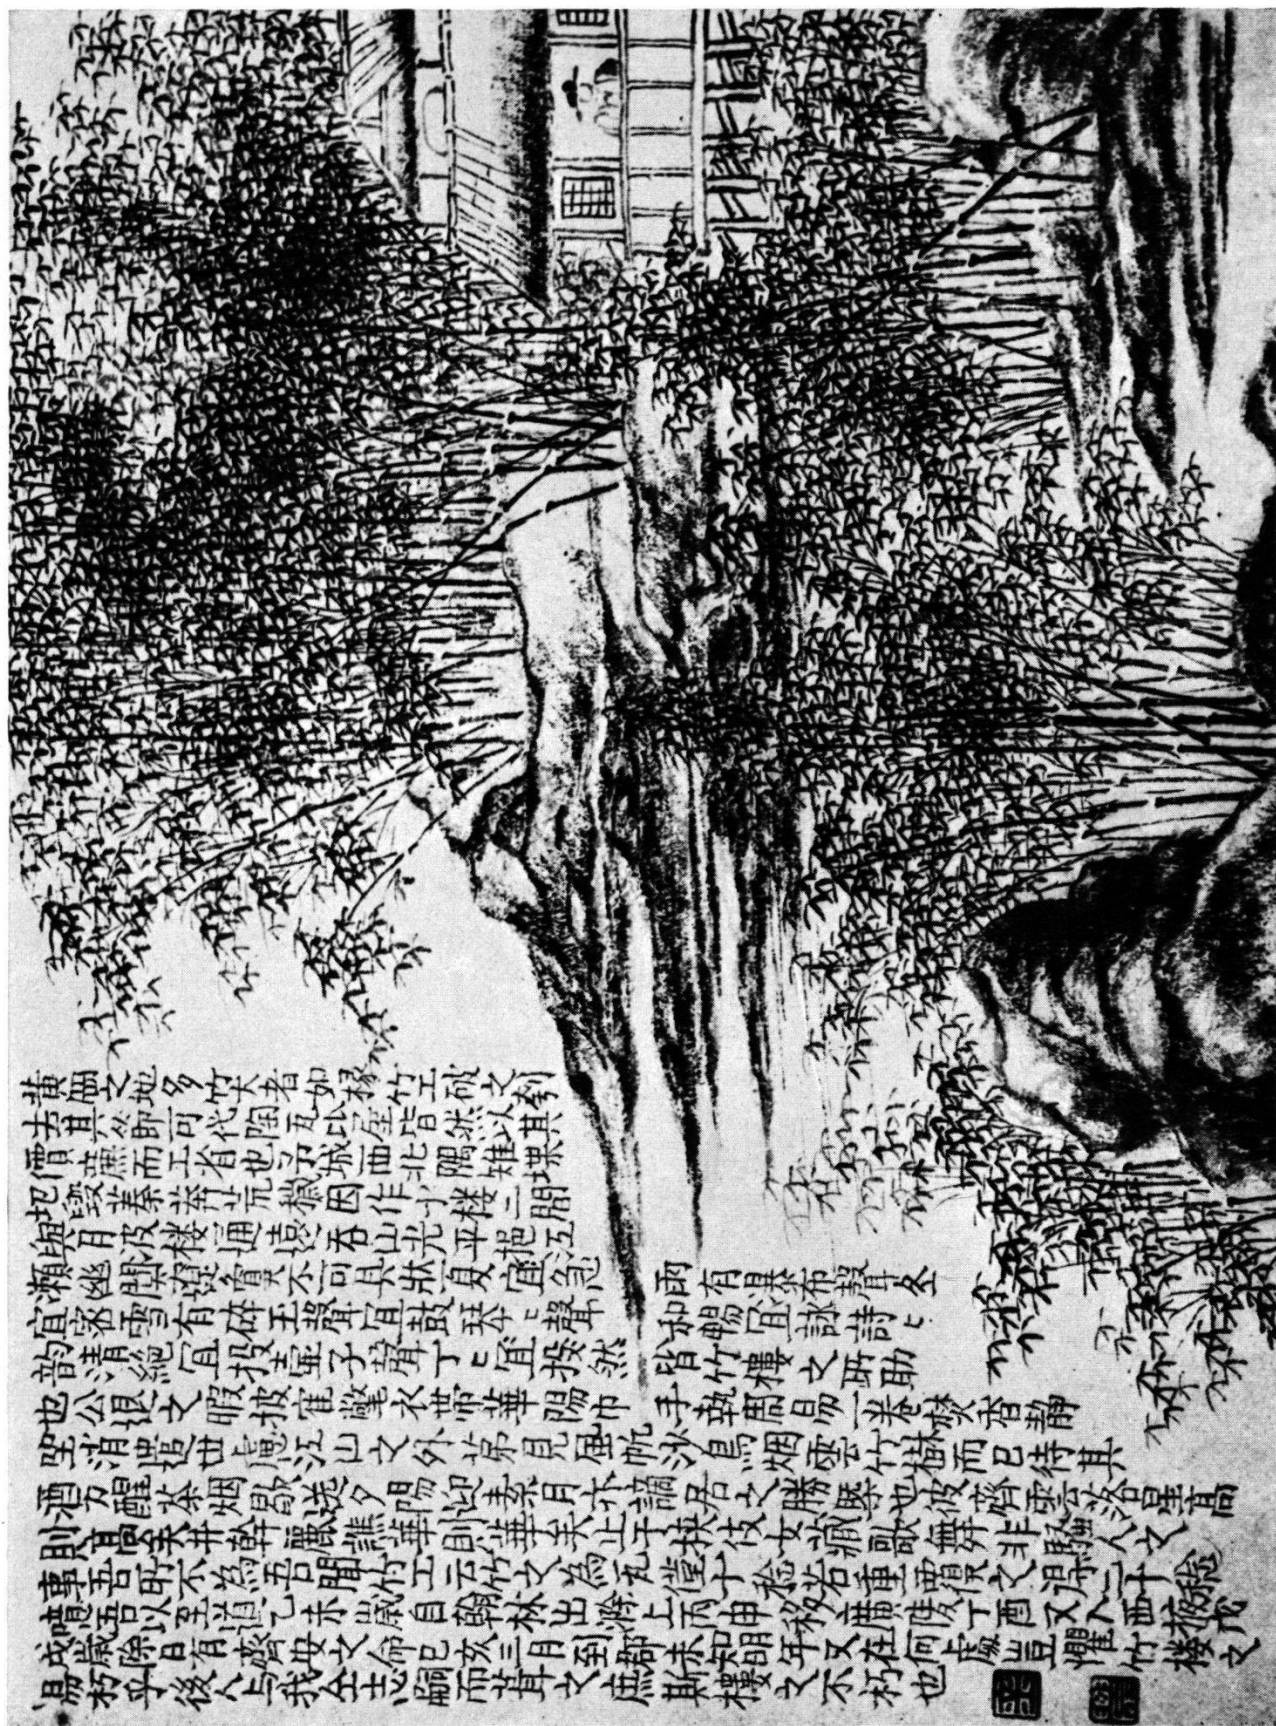 黄岡之地多竹大者如椽竹工破之刳
去其節即可代陶瓦比屋皆然以其
價廉而工省也子城西北隅雉堞
圯毀蓁莽荒穢因作小楼二間
與月波楼通遠吞山光平挹江
瀨幽闃遼夐不可具狀夏宜急雨有瀑布聲冬
宜密雪有碎玉聲宜鼓琴ヒ聲和暢宜詠詩ヒ
韵清絕宜投壷子聲丁ヒ宜投然皆竹樓之所助
也公退之暇披寉氅衣世帶華陽巾手執周易一卷焚香静
坐消遣世慮江山之外苐見風帆沙鳥烟雲竹樹而已待其
酒力醒茶烟歇送夕陽迎素月亦謫居之勝槩也彼齊雲落星高
則高矣井幹麗譙華則華矣止于挟伎女藏歌舞非騷人之
事吾所不為吾聞竹工云竹之為瓦僅十稔若重覆之得二十稔
噫吾以至道乙未歲自翰林出滁上丙申移廣陵丁酉又入西掖戊
戌歲除日有齊安之命已亥三月到郡未知明年又在何處豈懼竹楼之
易朽乎後人与我仝志嗣而葺之庶斯樓之不朽也